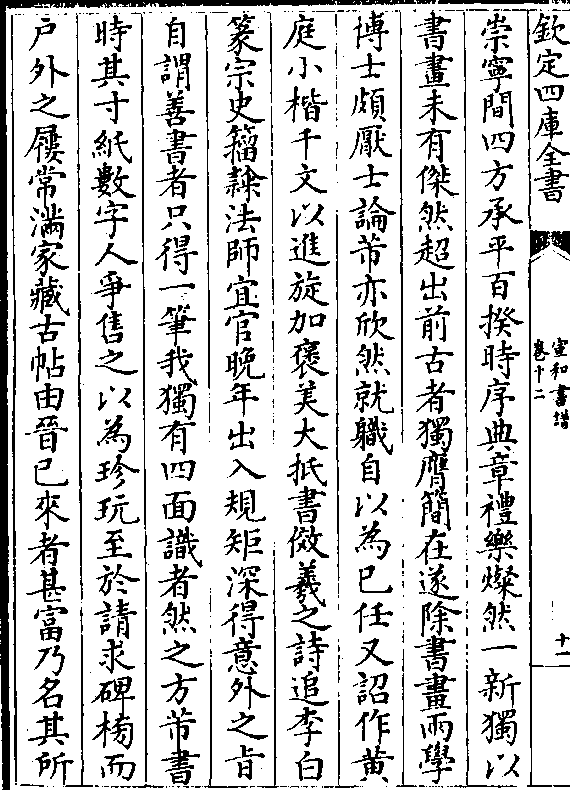 欽定四庫全書
宣和書譜
卷十二
十一
崇寧間四方承平百揆時序典章禮樂燦然一新獨以
書畫未有傑然超出前古者獨膺簡在遂除書畫兩學
博士頗厭士論芾亦欣然就職自以為己任又詔作黄
庭小楷千文以進旋加褒美大抵書傚羲之詩追李白
篆宗史籀隸法師宜官晚年出入規矩深得意外之旨
自謂善書者只得一筆我獨有四面識者然之方芾書
時其寸紙數字人爭售之以為珍玩至於請求碑榜而
户外之屨常滿家藏古帖由晉已來者甚富乃名其所